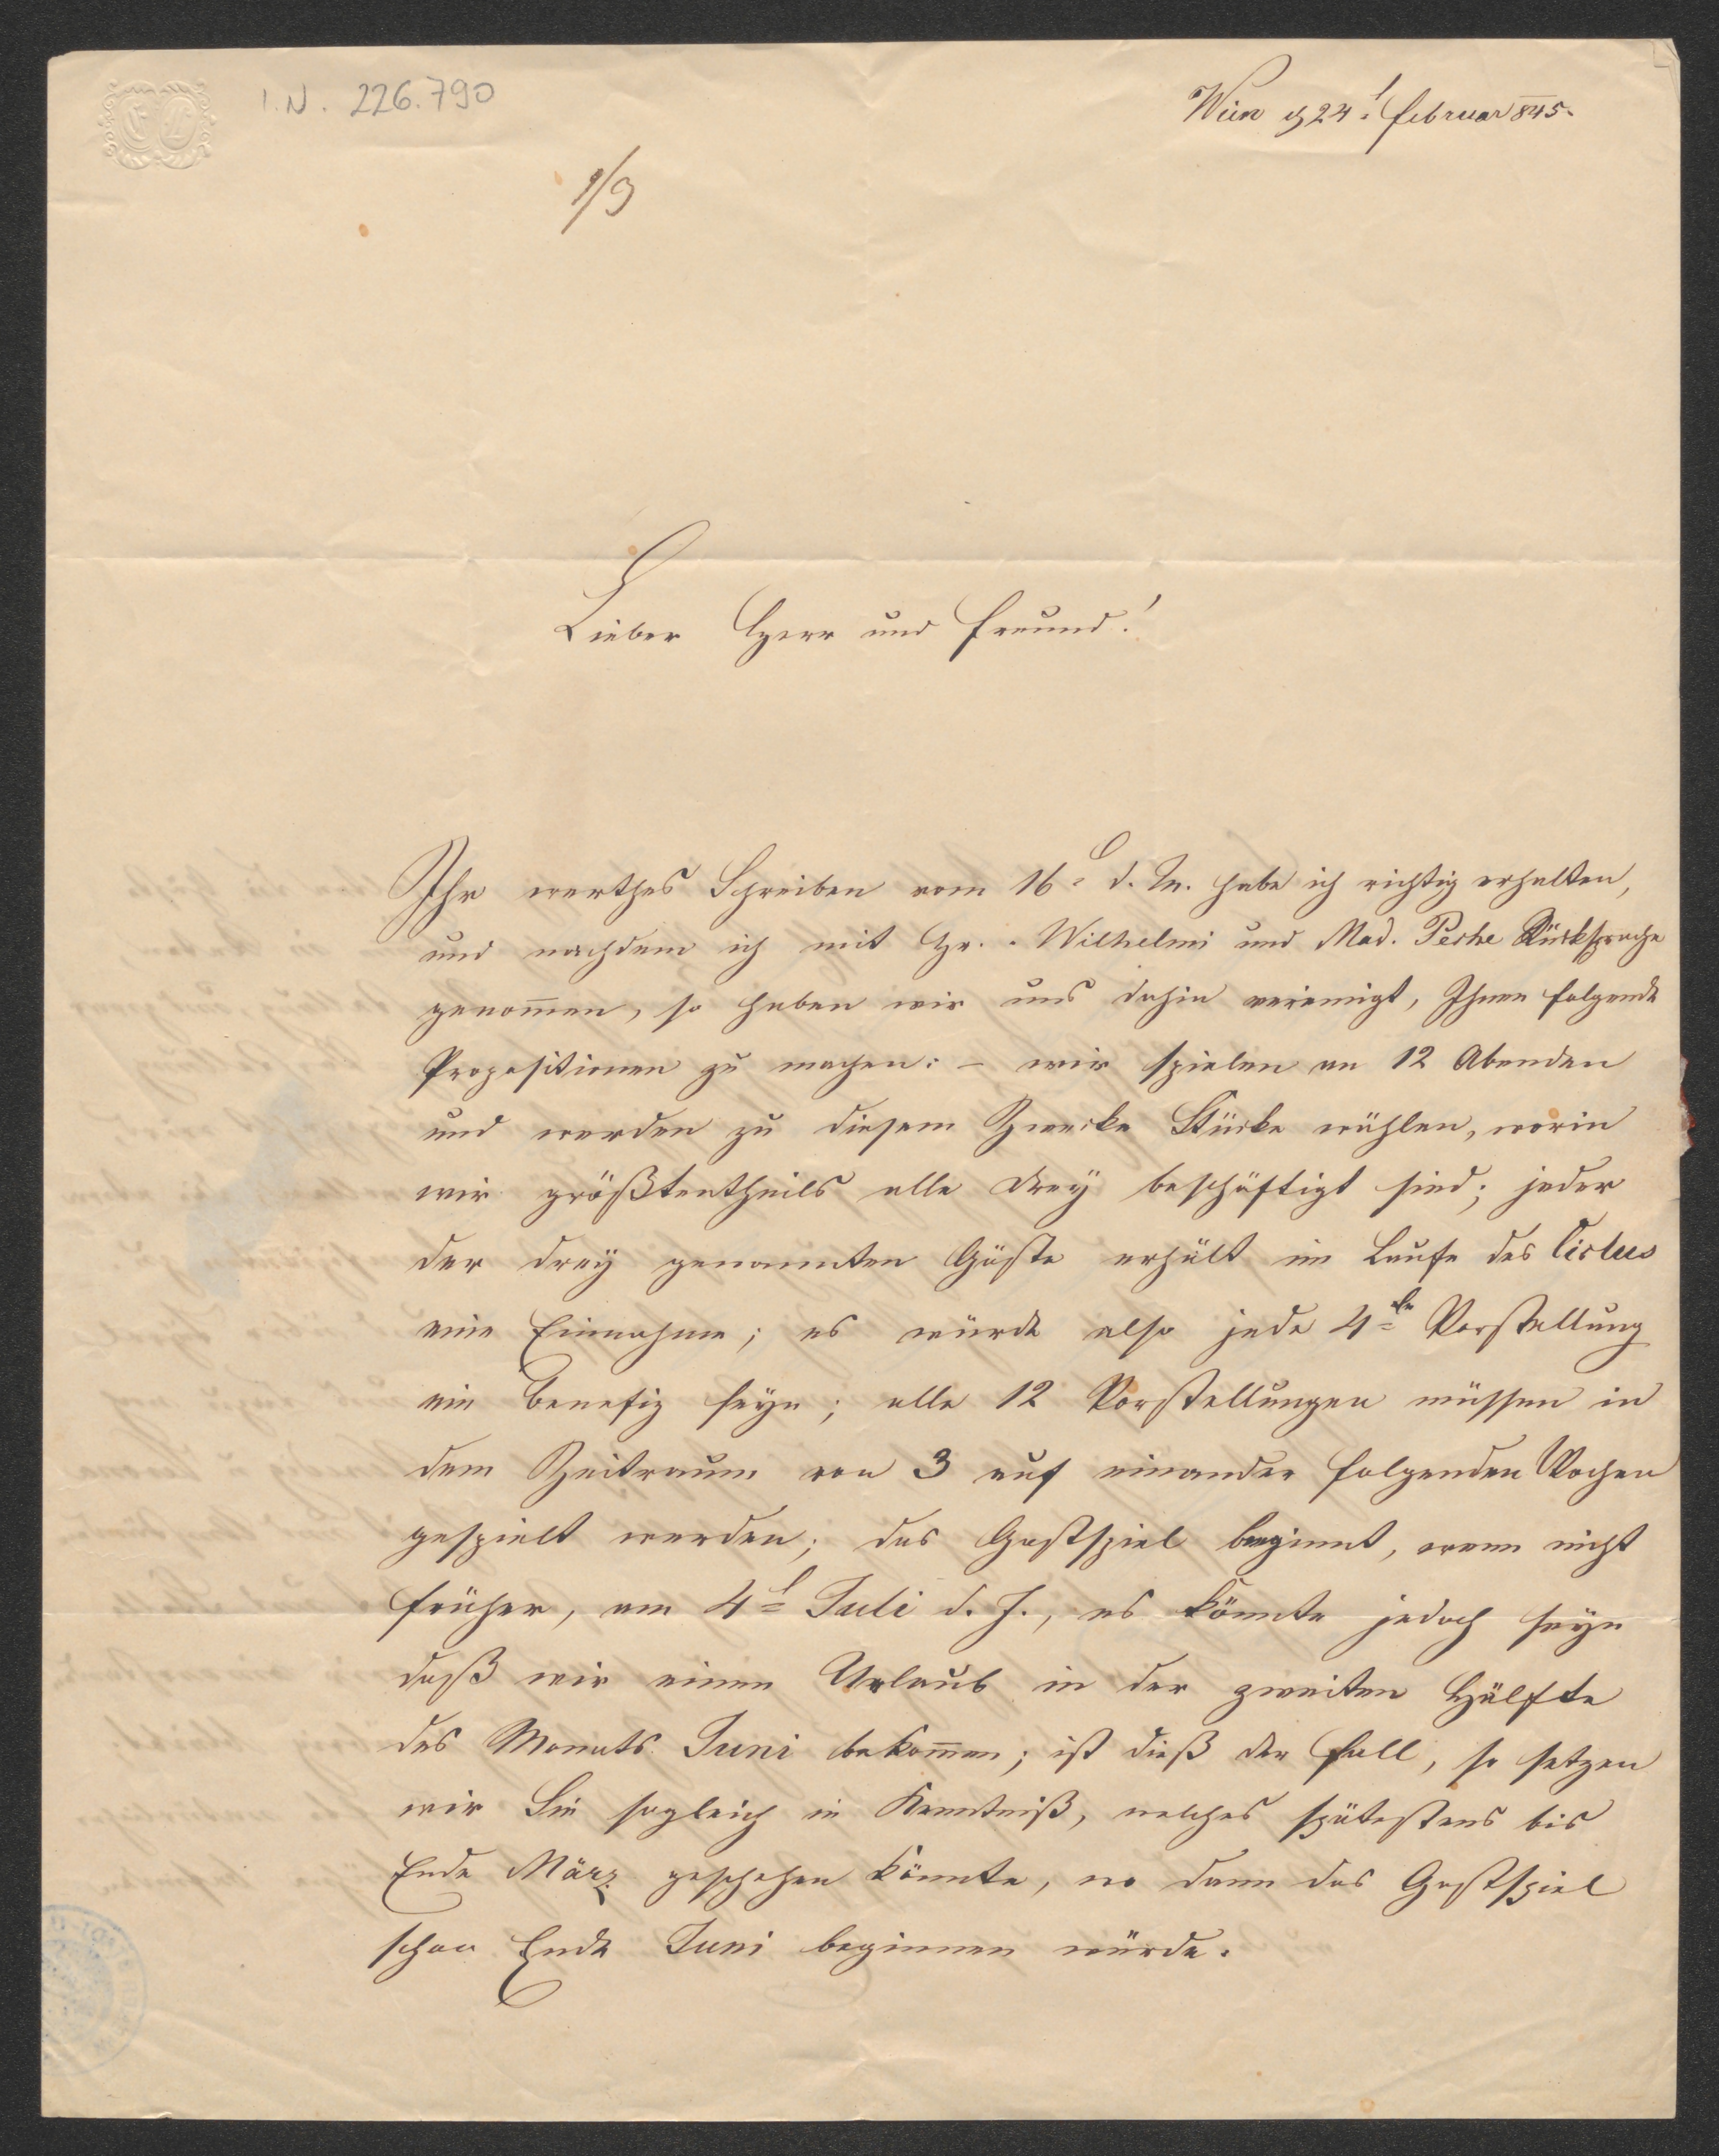 I.N. 226.790
Wien d 24t Februar 845.
1/3
Lieber Herr und Freund!
Ihr werthes Schreiben vom 16t d. M. habe ich richtig erhalten,
und nachdem ich mit Hr. Wilhelmi und Mad. Peche Rücksprache
genom̅en, so haben wir uns dahin vereinigt, Ihnen folgende
Propositionen zu machen: – wir spielen an 12 Abenden
und werden zu diesem Zwecke Stücke wählen, worin
wir größtentheils alle drey beschäftigt sind; jeder
der drey genannten Gäste erhält im Laufe des Ciclus
eine Einnahme; es würde also jede 4te Vorstellung
ein Benefiz seyn; alle 12 Vorstellungen müssen in
dem Zeitraum von 3 auf einander folgenden Wochen
gespielt werden; das Gastspiel beginnt, wenn nicht
früher, am 4t Juli d. J., es könnte jedoch seyn
daß wir einen Urlaub in der zweiten Hälfte
des Monats Juni bekom̅en; ist dieß der Fall, so setzen
wir Sie sogleich in Kenntniß, welches spätestens bis
Ende März geschehen könnte, wo dann das Gastspiel
schon Ende Juni beginnen würde.